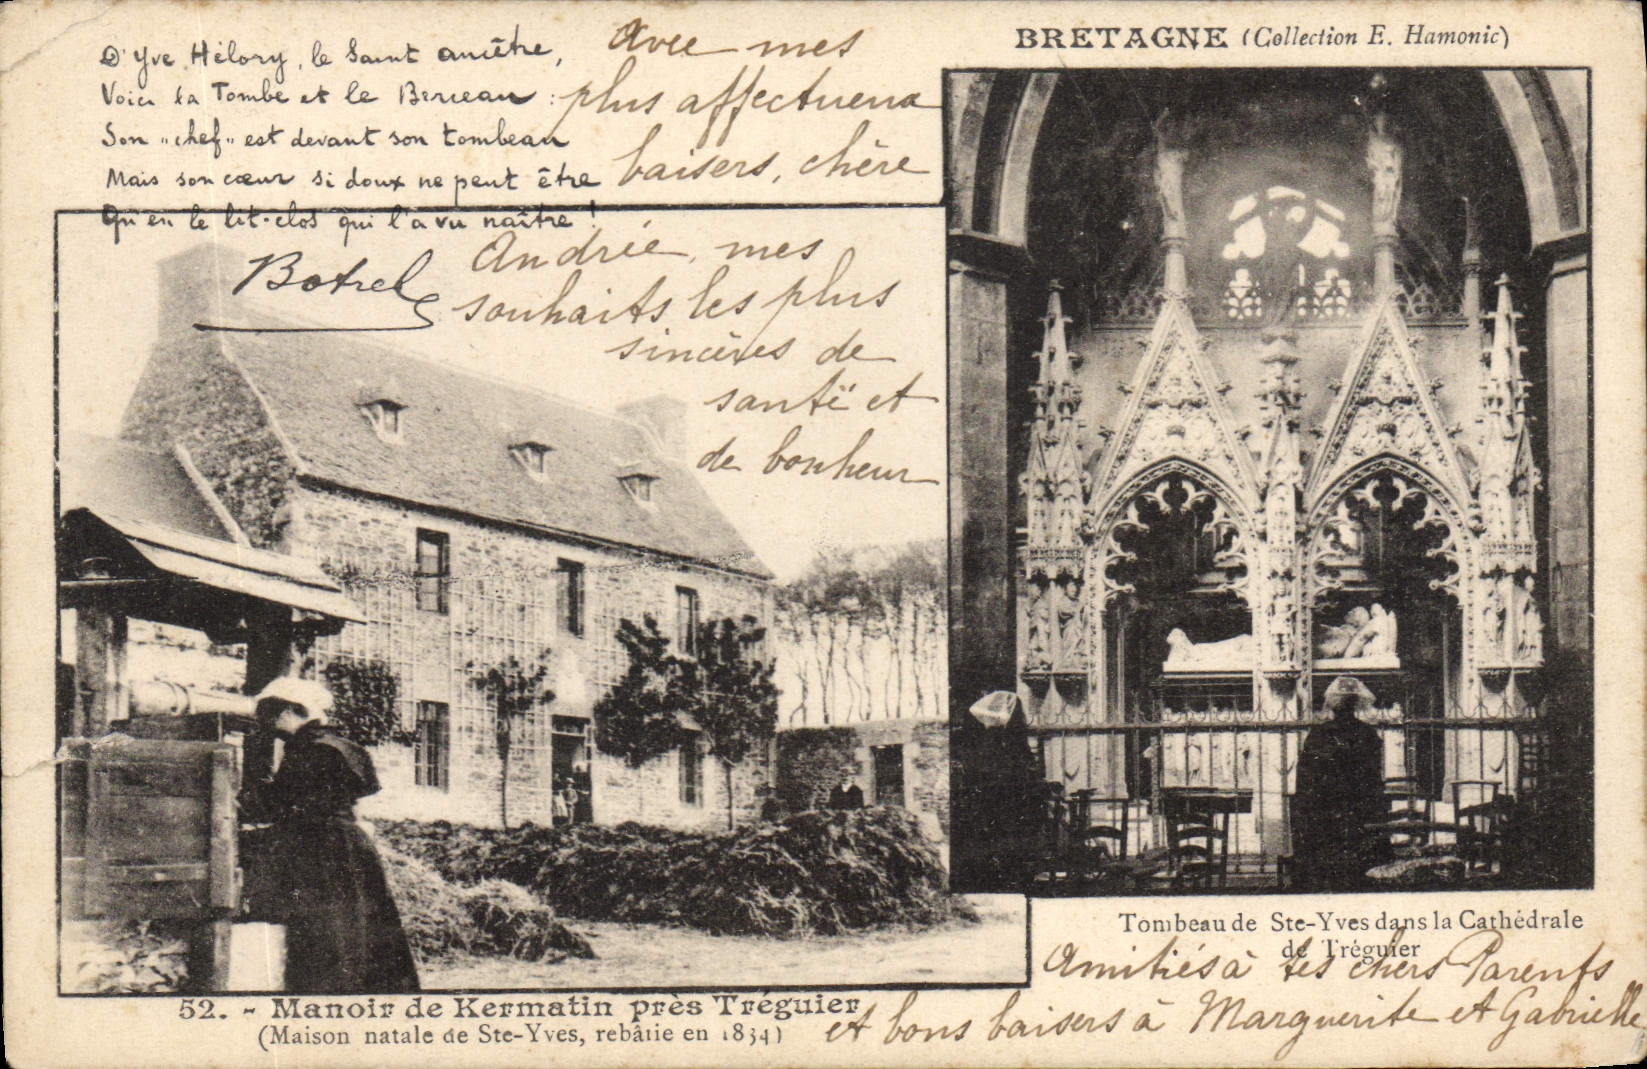 BRETAGNE (Collection E. Hamonic)
D'Yve Hélory, le Saint ancêtre,
Voici la Tombe et le Berceau :
Son "chef" est devant son tombeau
Mais son cœur si doux ne peut être
Qu'en le lit-clos qui l'a vu naître !
Botrel
Avec mes
plus affectueux
baisers, chère
Andrée, mes
souhaits les plus
sincères de
santé et
de bonheur
Tombeau de Ste-Yves dans la Cathédrale
de Tréguier
Amitiés à tes chers Parents
et bons baisers à Marguerite et Gabrielle
52. - Manoir de Kermatin près Tréguier
(Maison natale de Ste-Yves, rebâtie en 1834)